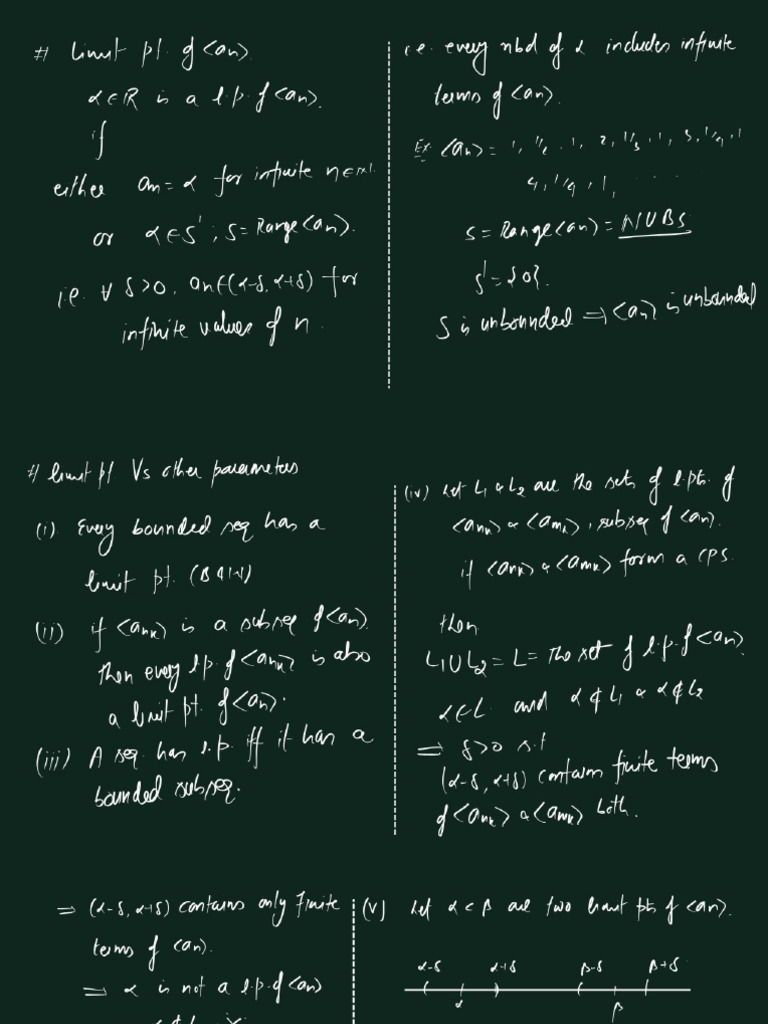 # limit pt. of <an>.
α∈R is a l.p. of <an>.
if
either an = α for infinite n∈
or α∈S' ; S=Range<an>.
i.e. ∀ δ>0, an∈(α-δ, α+δ) for
infinite values of n.
i.e. every nbd of α includes infinite
terms of <an>.
Ex <an> = 1, 1/2, 1, 2, 1/3, 1, 3, 1/4, 1
4, 1/4, 1, .....
S = Range<an> = NUBS
S' = {0}.
S is unbounded ⇒ <an> is unbounded
# limit pt. Vs other parameters
(i). Every bounded seq has a
limit pt. (B
(ii) if <ank> is a subseq of <an>.
then every l.p. of <ank> is also
a limit pt. of <an>.
(iii) A seq. has l.p. iff it has a
bounded subseq.
(iv) Let L1 & L2 are the sets of l.pts. of
<ank> & <amk>, subseq of <an>.
if <ank> & <amk> form a CPS.
then
L1∪L2 = L = the set of l.p. of <an>.
α∈L and α∉L1 & α∉L2
⇒ δ>0 s.t
(α-δ, α+δ) contains finite terms
of <ank> & <amk> both.
⇒ (α-δ, α+δ) contains only finite
terms of <an>.
⇒ α is not a l.p. of <an>
(v) Let α<β are two limit pts of <an>.
α-δ α+δ β-δ β+δ
α β